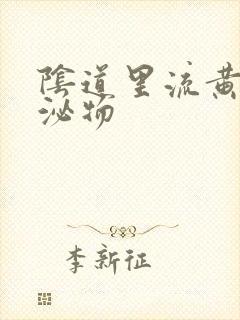 陰道里流黃
泌物
李新征